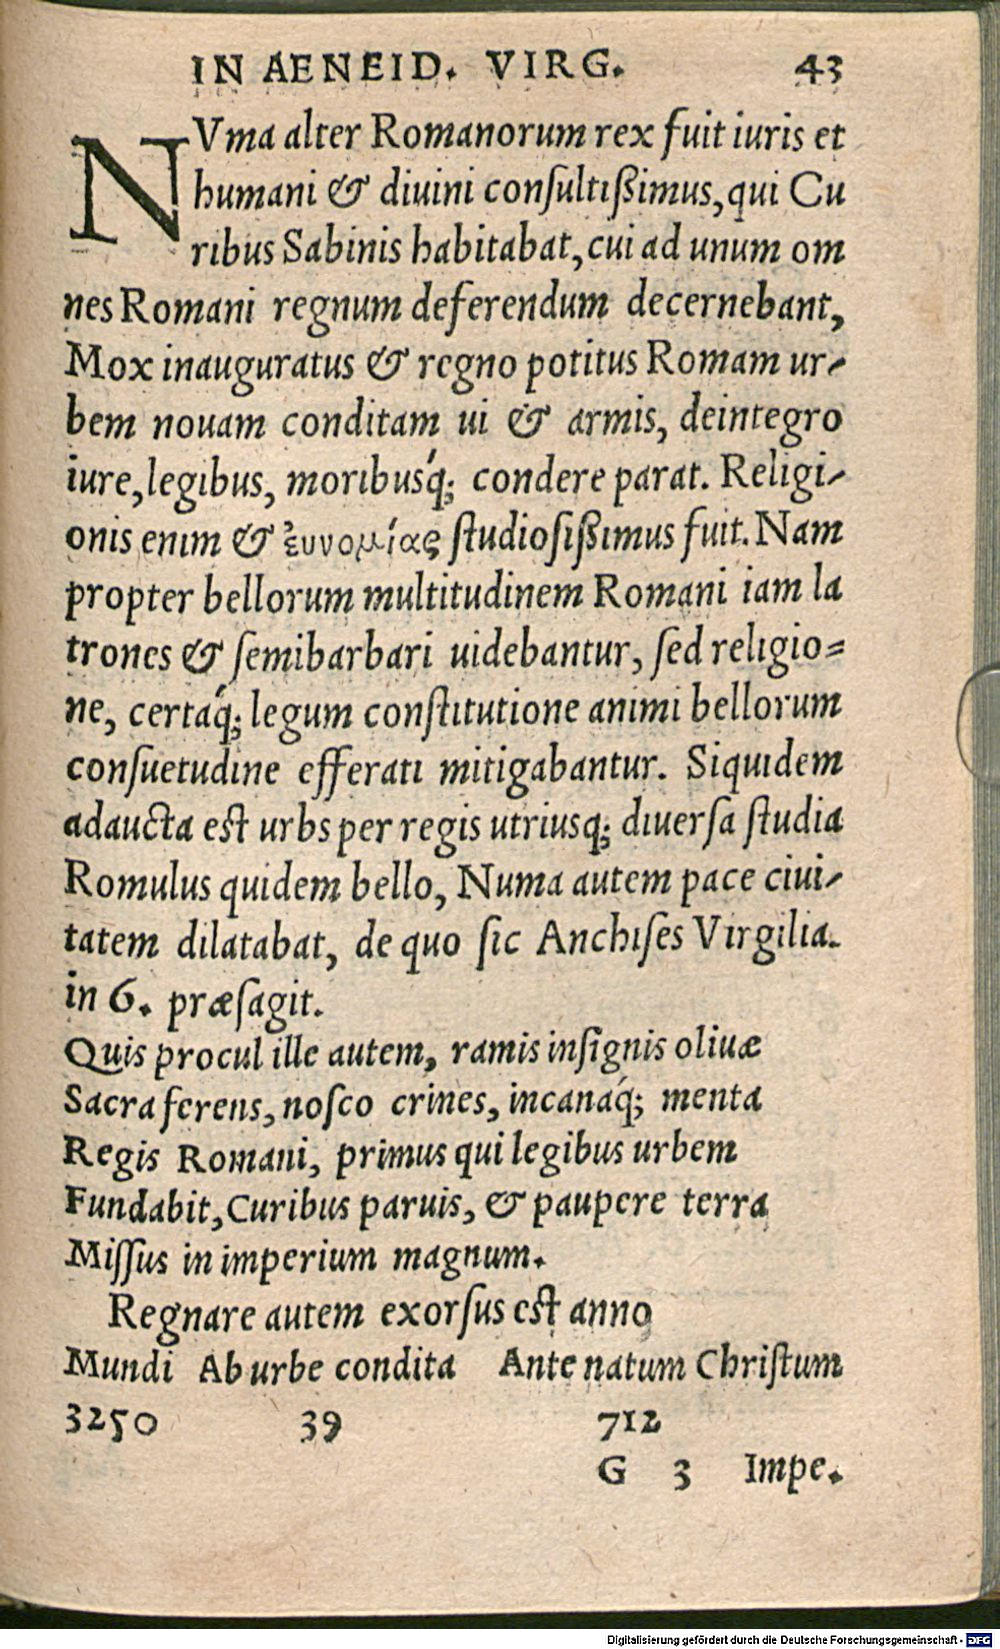 IN AENEID. VIRG. 43
NVma alter Romanorum rex fuit iuris et
humani & diuini conſultiſsimus, qui Cu
ribus Sabinis habitabat, cui ad unum om
nes Romani regnum deferendum decernebant,
Mox inauguratus & regno potitus Romam ur-
bem nouam conditam ui & armis, deintegro
iure, legibus, moribusq́; condere parat. Religi-
onis enim & ξυνομίας ſtudioſiſsimus fuit. Nam
propter bellorum multitudinem Romani iam la
trones & ſemibarbari uidebantur, ſed religio=
ne, certaq́; legum conſtitutione animi bellorum
conſuetudine efferati mitigabantur. Siquidem
adaucta eſt urbs per regis utriusq; diuerſa ſtudia
Romulus quidem bello, Numa autem pace ciui-
tatem dilatabat, de quo ſic Anchiſes Virgilia.
in 6. præſagit.
Quis procul ille autem, ramis inſignis oliuæ
Sacra ferens, noſco crines, incanaq́; menta
Regis Romani, primus qui legibus urbem
Fundabit, Curibus paruis, & paupere terra
Miſſus in imperium magnum.
Regnare autem exorſus eſt anno
Mundi Ab urbe condita Ante natum Chriſtum
3250 39 712
G 3 Impe.
Digitalisierung gefördert durch die Deutsche Forschungsgemeinschaft - DFG